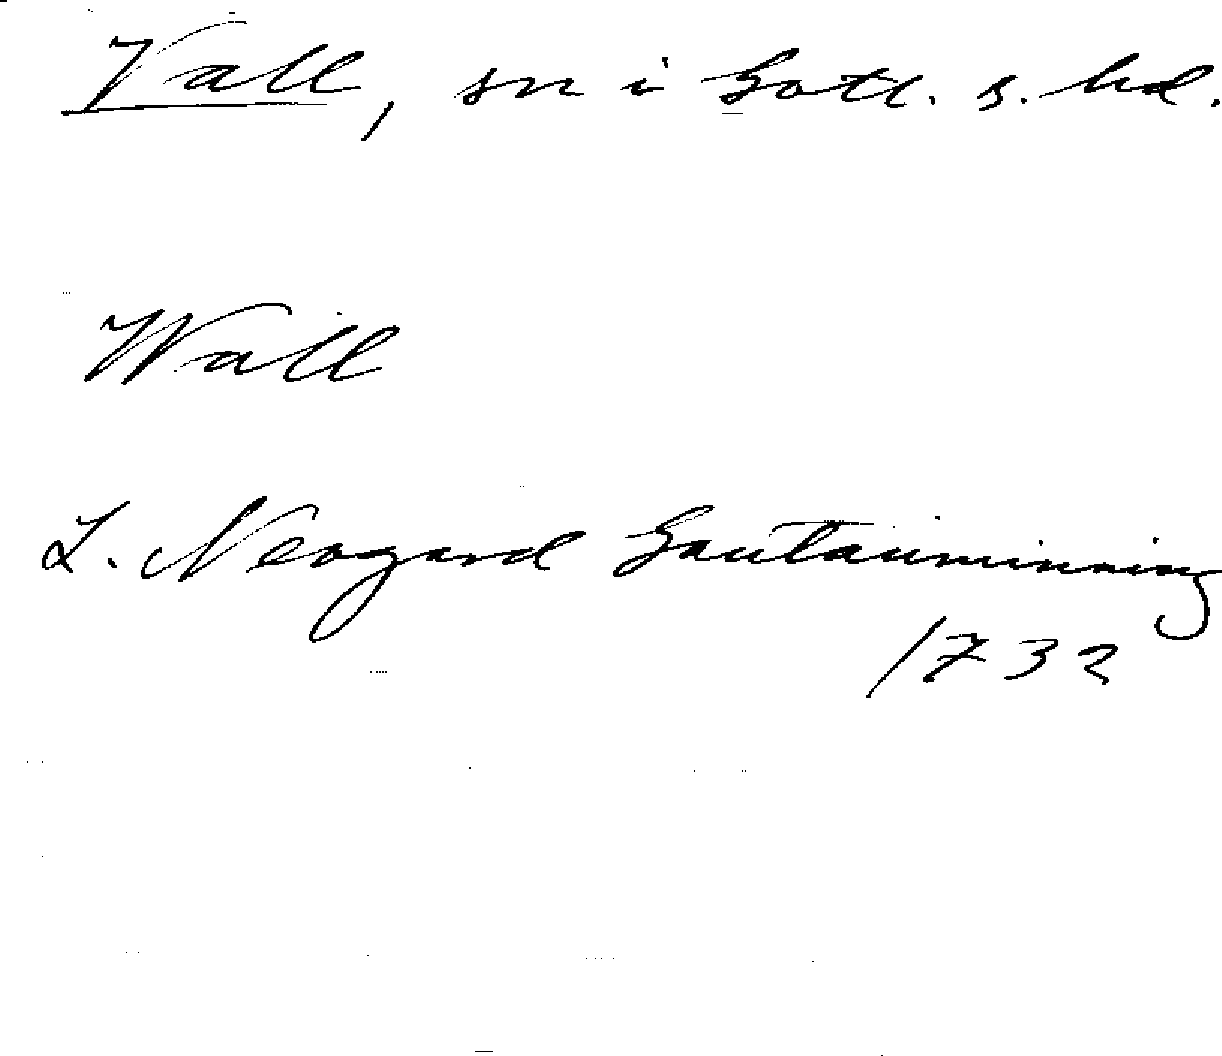 Vall, sn i Gotl. s. hd.
Wall
L. Neogard Gautauminning
1732